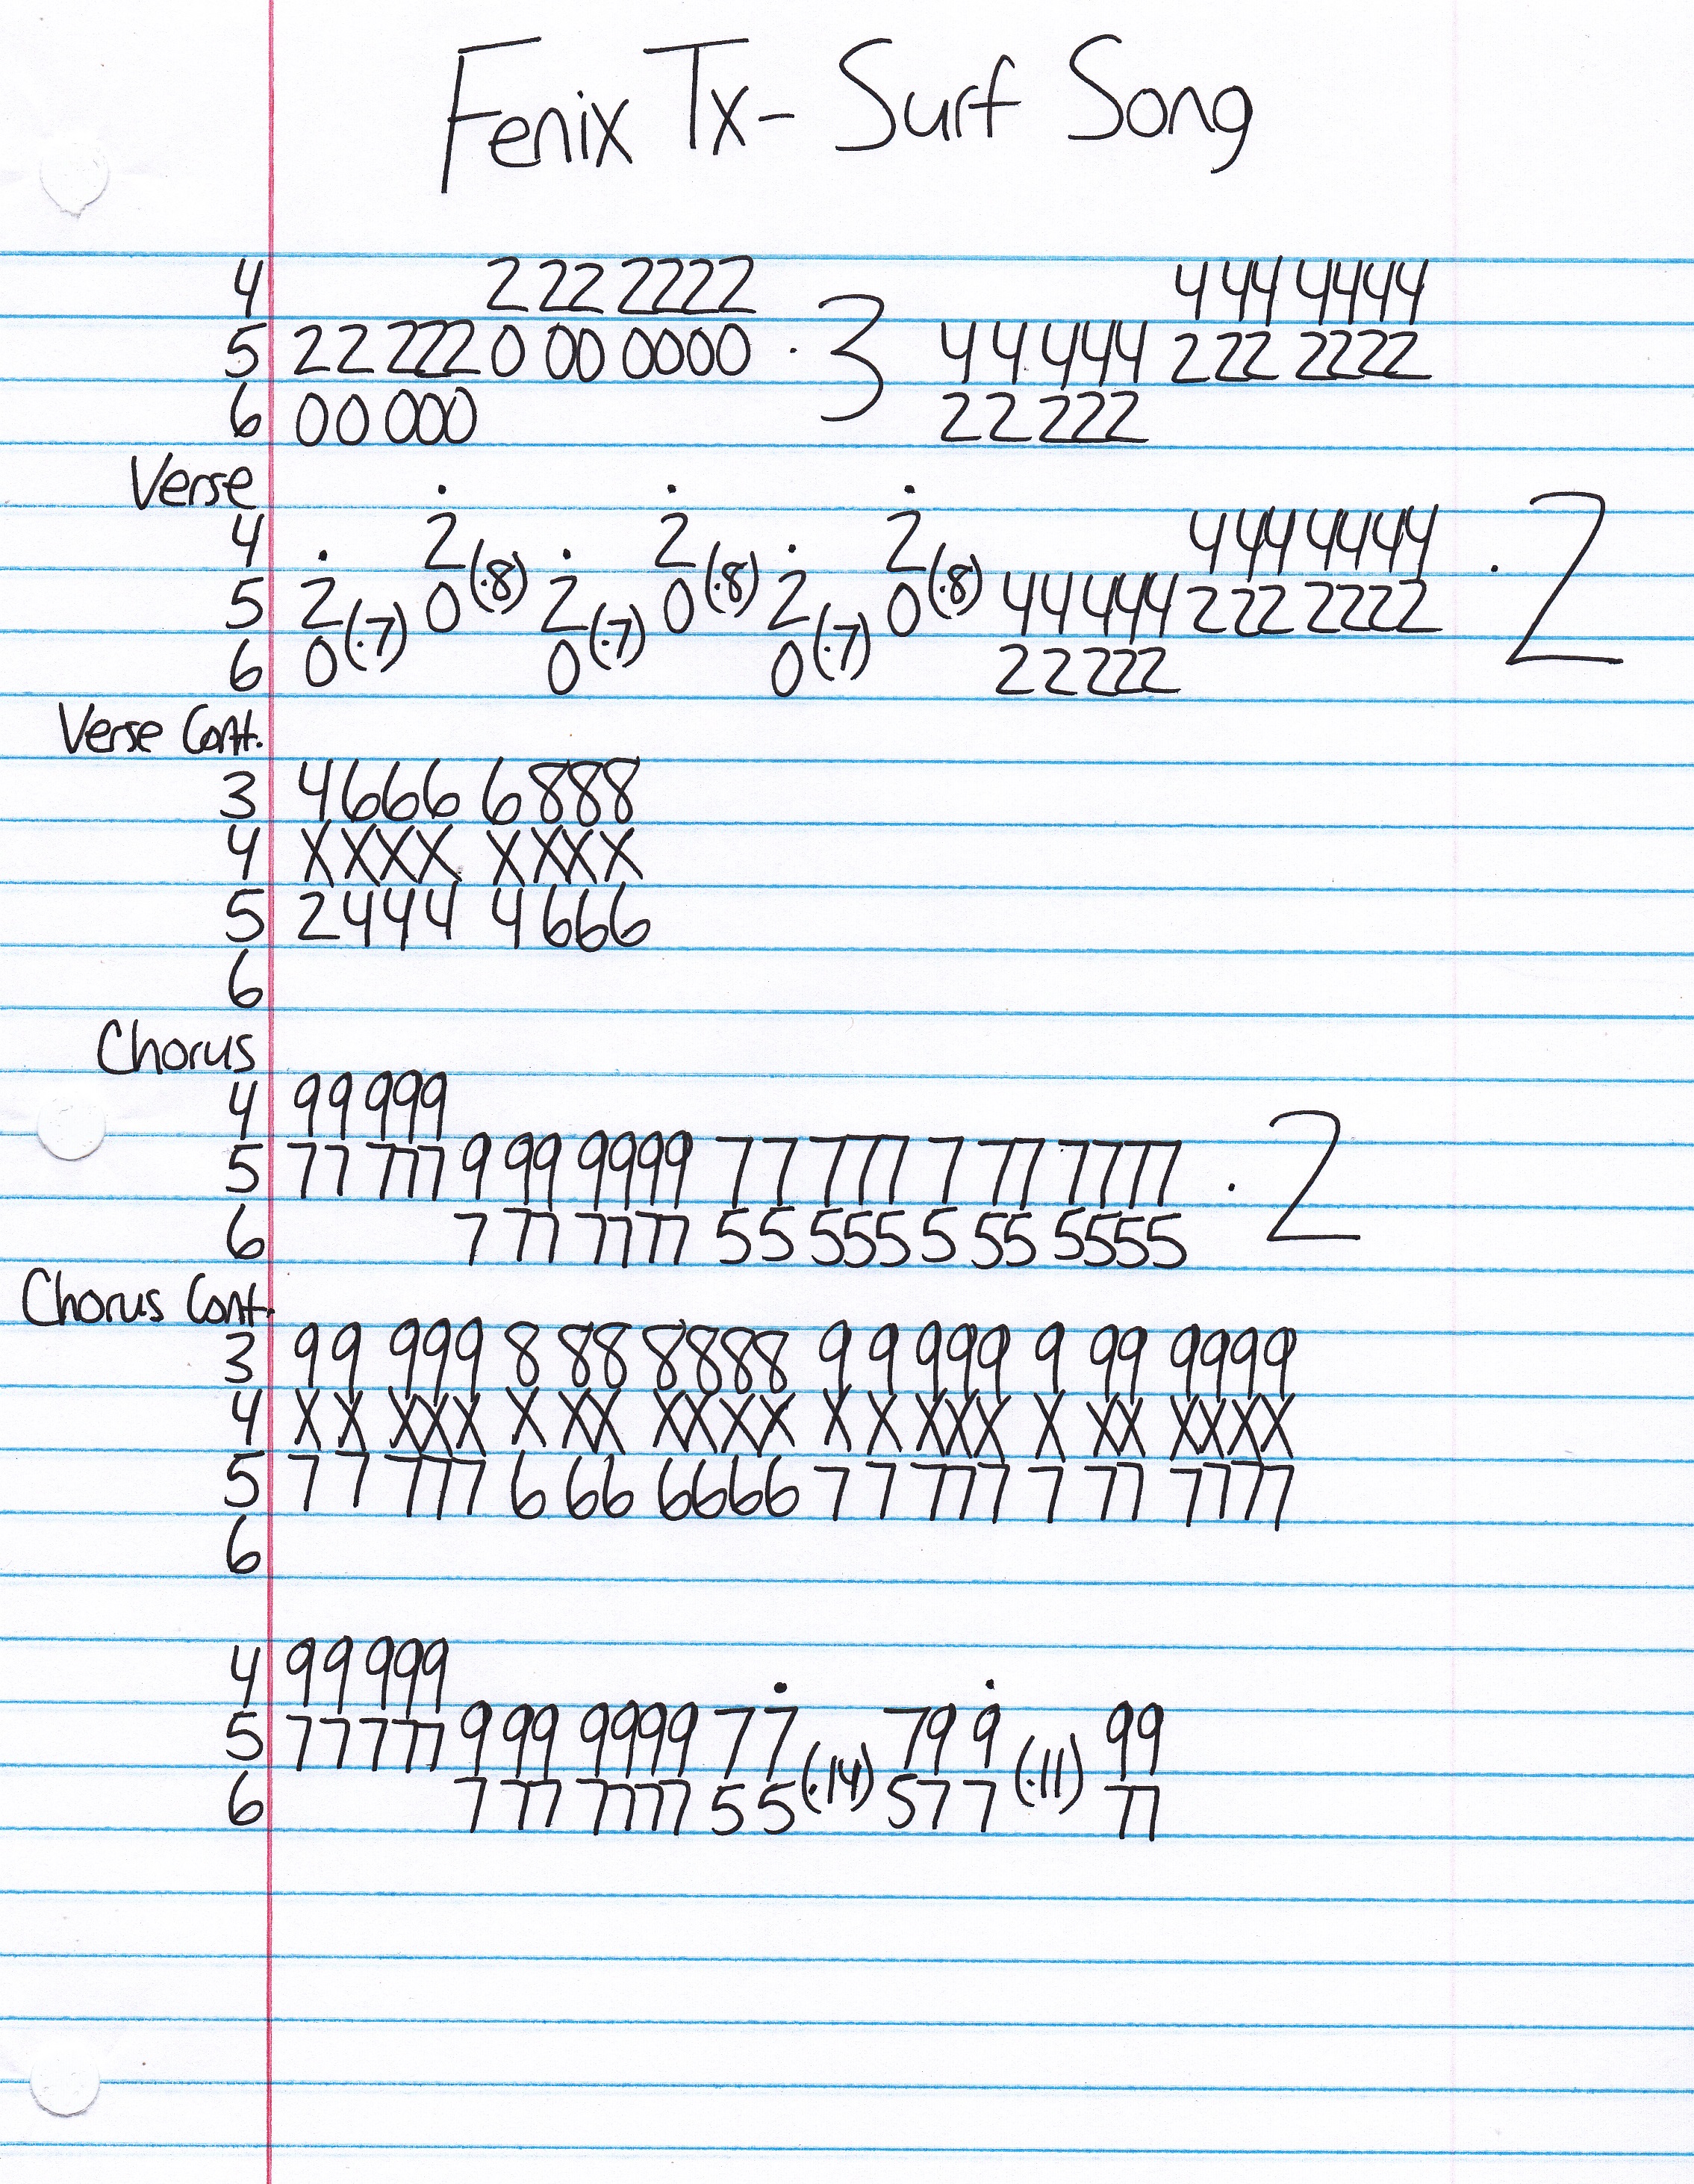 Fenix Tx- Surf Song
4 2 22 2222 4 44 4444
5 22 222 0 00 0000 · 3 44 444 222 2222
6 00 000 22 222
Verse
4 · 2̇ · 2̇ · 2̇ 444 4444
5 2 (·7) 0 (·8) 2 (·7) 0 (·8) 2 (·7) 0 (·8) 44 444 222 2222 · 2
6 0 0 0 22 222
Verse Cont.
3 4666 6888
4 XXXX XXXX
5 2444 4666
6
Chorus
4 99 999
5 77 777 9 99 9999 77 777 7 77 7777 · 2
6 7 77 7777 55 555 5 55 5555
Chorus Cont.
3 99 999 8 88 8888 99 999 9 99 9999
4 XX XXX X XX XXXX XX XXX X XX XXXX
5 77 777 6 66 6666 77 777 7 77 7777
6
4 99 999
5 77 777 9 99 9999 77̇ (·14) 799̇ (·11) 99
6 7 77 7777 55 577 77